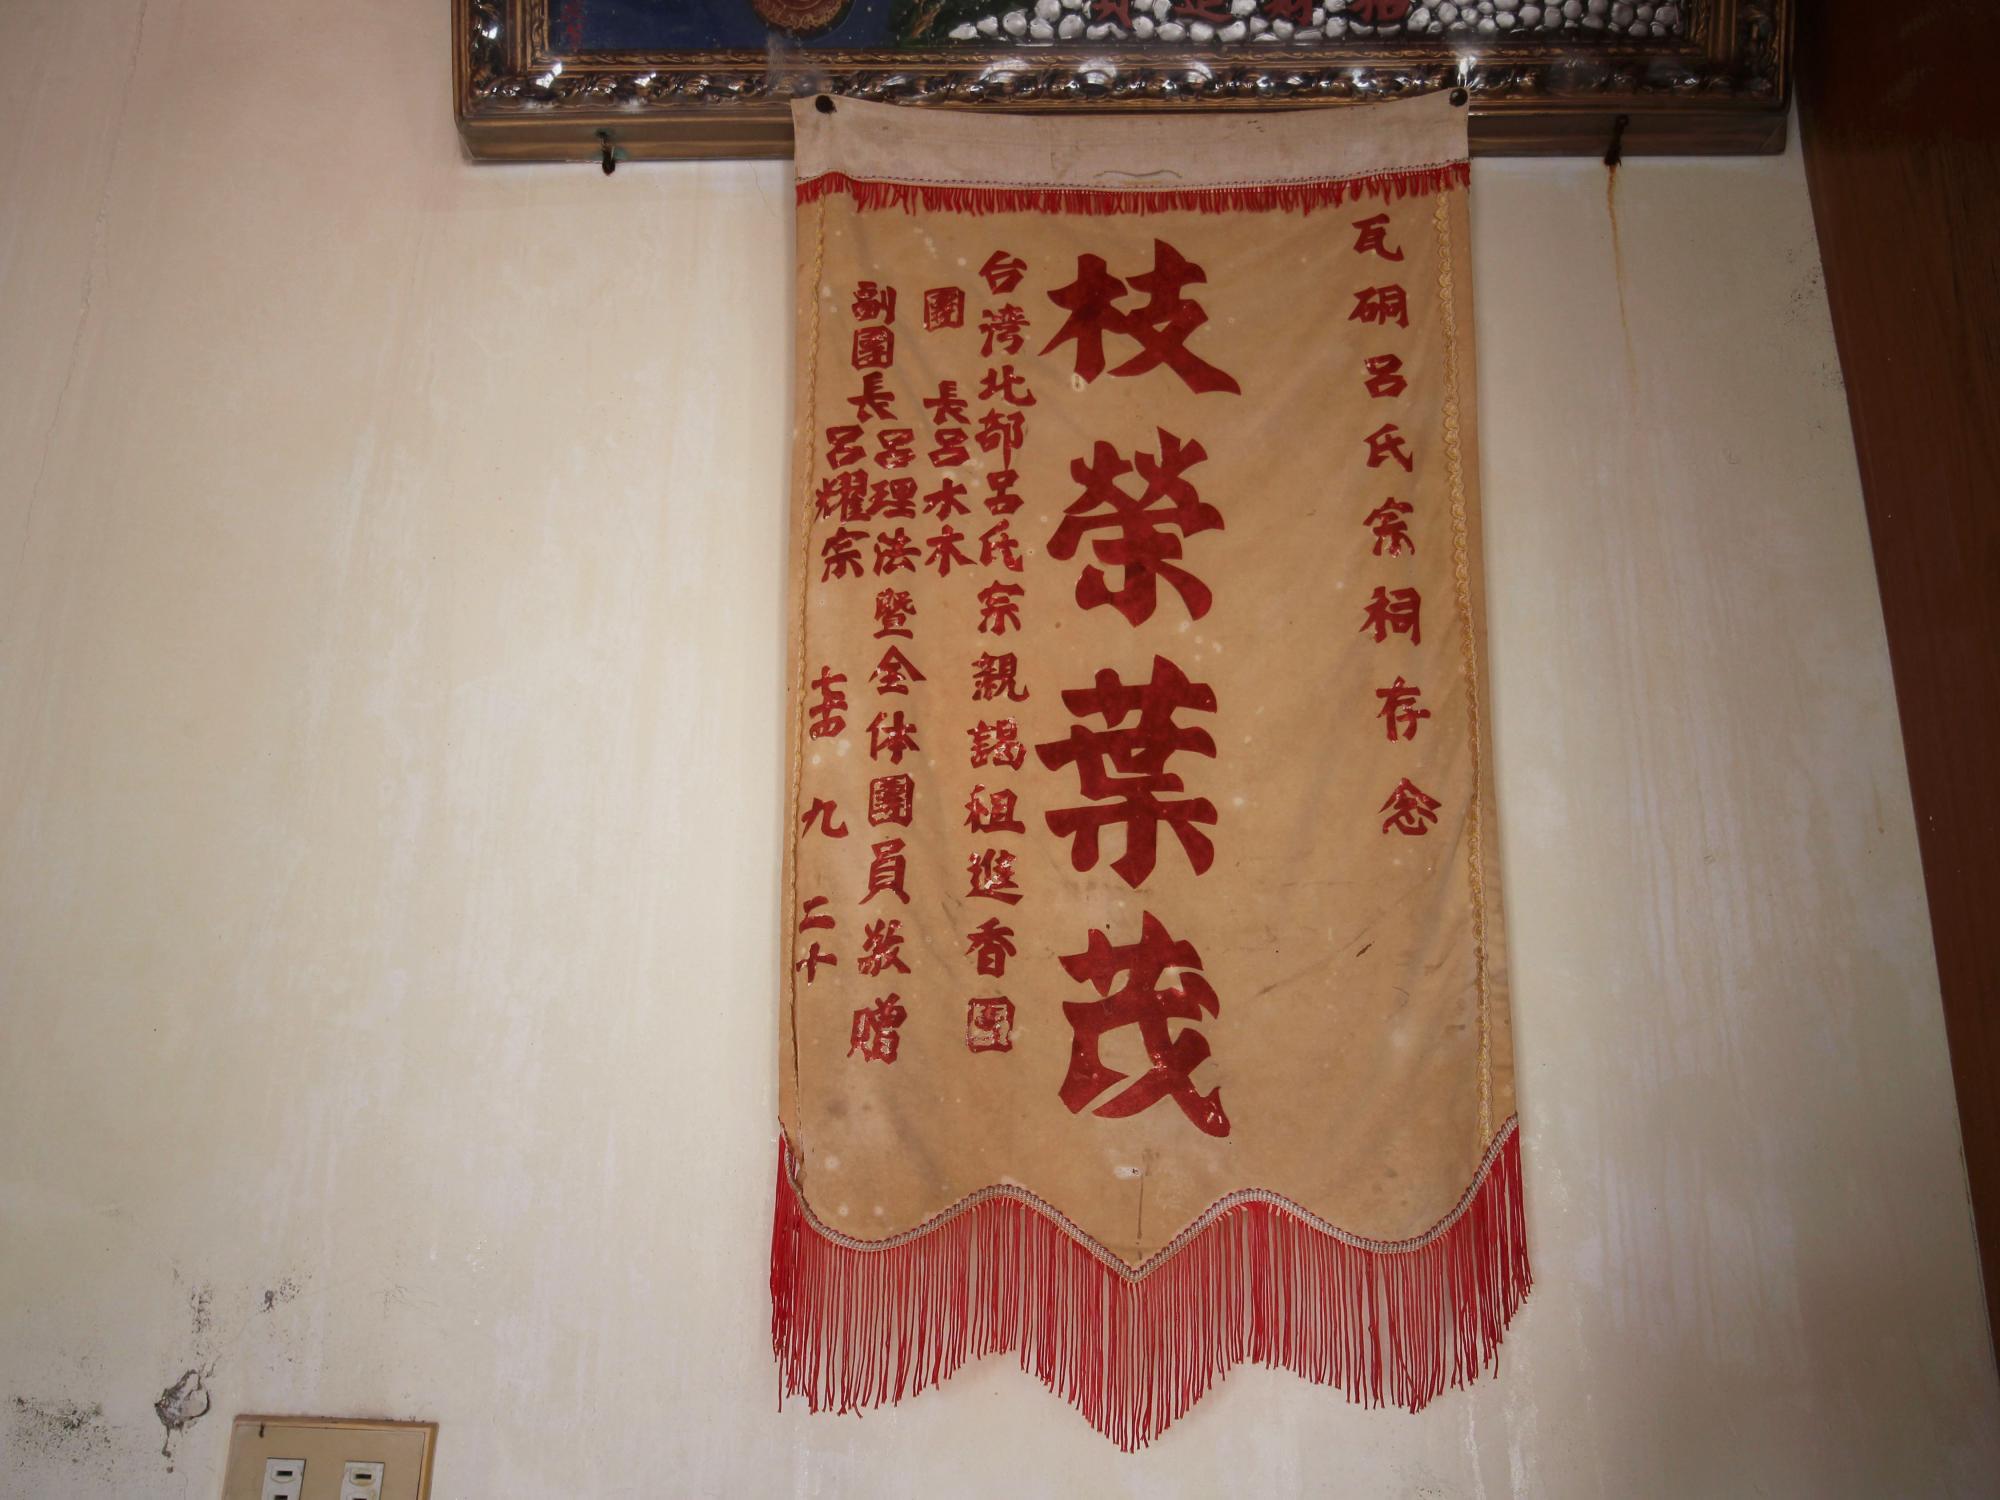 瓦硐呂氏宗祠存念
枝榮葉茂
台湾北部呂氏宗親謁祖進香團
團長呂水木
副團長呂理法暨全体團員敬贈
呂耀宗
九 二十